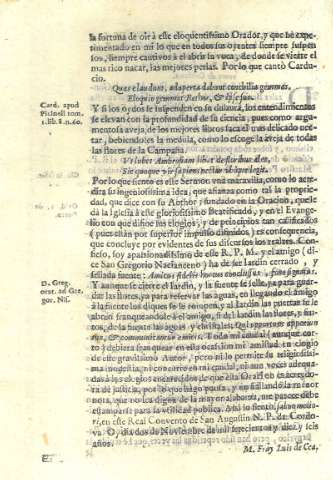 la fortuna de oir à este eloquentissimo Orador, y que he expe-
rimentado en mi lo que en todos sus oyentes siempre suspen-
sos, siempre cautivos à el abrir la voca, de donde se vierte el
mas rico nacar, las mejores perlas. Por lo que cantò Cardu-
cio.
Card. apud
Picineli tom.
1. lib. 8. n. 60.
Quas claudunt, adaperta dabunt conchilia gemmas,
Eloquio gemmas
Y si los oydos se suspenden en su dulzura, los entendimientos
se elevan con la profundidad de su ciencia, pues como
aveja, de los mejores libros faca el mas delicado nec-
tar, bebiendoles la medula, como lo escoge la aveja de todas
las flores de la Campaña.
Vt libet Ambrosiam libet de floribus
Sic quoque vir sapiens nectar
Por lo que siento es este Sermon vna maravilla, como lo acre-
dita la ingeniosissima idea, que afianza como tal la proprie-
dad, que dice con su Author; fundado en la Oracion, que le
dà la Iglesia à este gloriosissimo Beatificado, y en el Evange-
lio con que difine los elogios, y de principios tan calificados
(pues están por superior impulso difinidos) es consequencia,
que concluye por evidentes de sus discursos los realzes. Con-
fieso, soy apasionadissimo de este R. P. M. y el amigo (di-
D. Greg.
orat. ad Gre-
gor. Nis.
ce San Gregorio Nacianceno) ha de ser Jardin cerrado, y
sellada fuente: Amicus fidelis hortus conclusus, fons signatus.
Y aunque se cierre el Jardin, y la fuente se selle, ya para guar-
dar las flores, ya para reservar las aguas, en llegando el amigo
à la fuente los diques se le rompen, y al Jardin las puertas se le
abren: franqueandole à el amigo, si del Jardin las flores, y fru-
tos; de la fuente las aguas, y cristales:
communicantur amicis. Todo mi caudal (aunque cor-
to) debiera franquear en esta ocasion mi amistad en elogio
de este gravissimo Author, pero ni lo permite su religiosissi-
ma modestia, ni encuentro en mi caudal, ni aun voces adequa-
das à los elogios merecidos de que esta Oracion es acreedo-
ra de justicia, por lo que hago punto, y no hallando la menor
nota, que no sea digna de la mayor alabanza, me parece debe
estamparse para la vtilidad publica. Assi lo siento,
en este Real Convento de San Augustin N. P. de Cordo-
va. O, dias de Noviembre de mil setecientos y diez y seis
años.
M. Fray Luis de Cea.